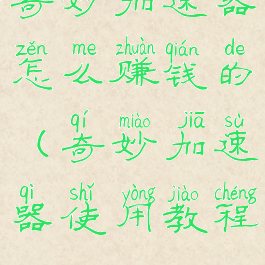 奇妙加速器
zěn me zhuàn qián de
怎么赚钱的
qí miào jiā sù
（奇妙加速
qì shǐ yòng jiào chéng
器使用教程